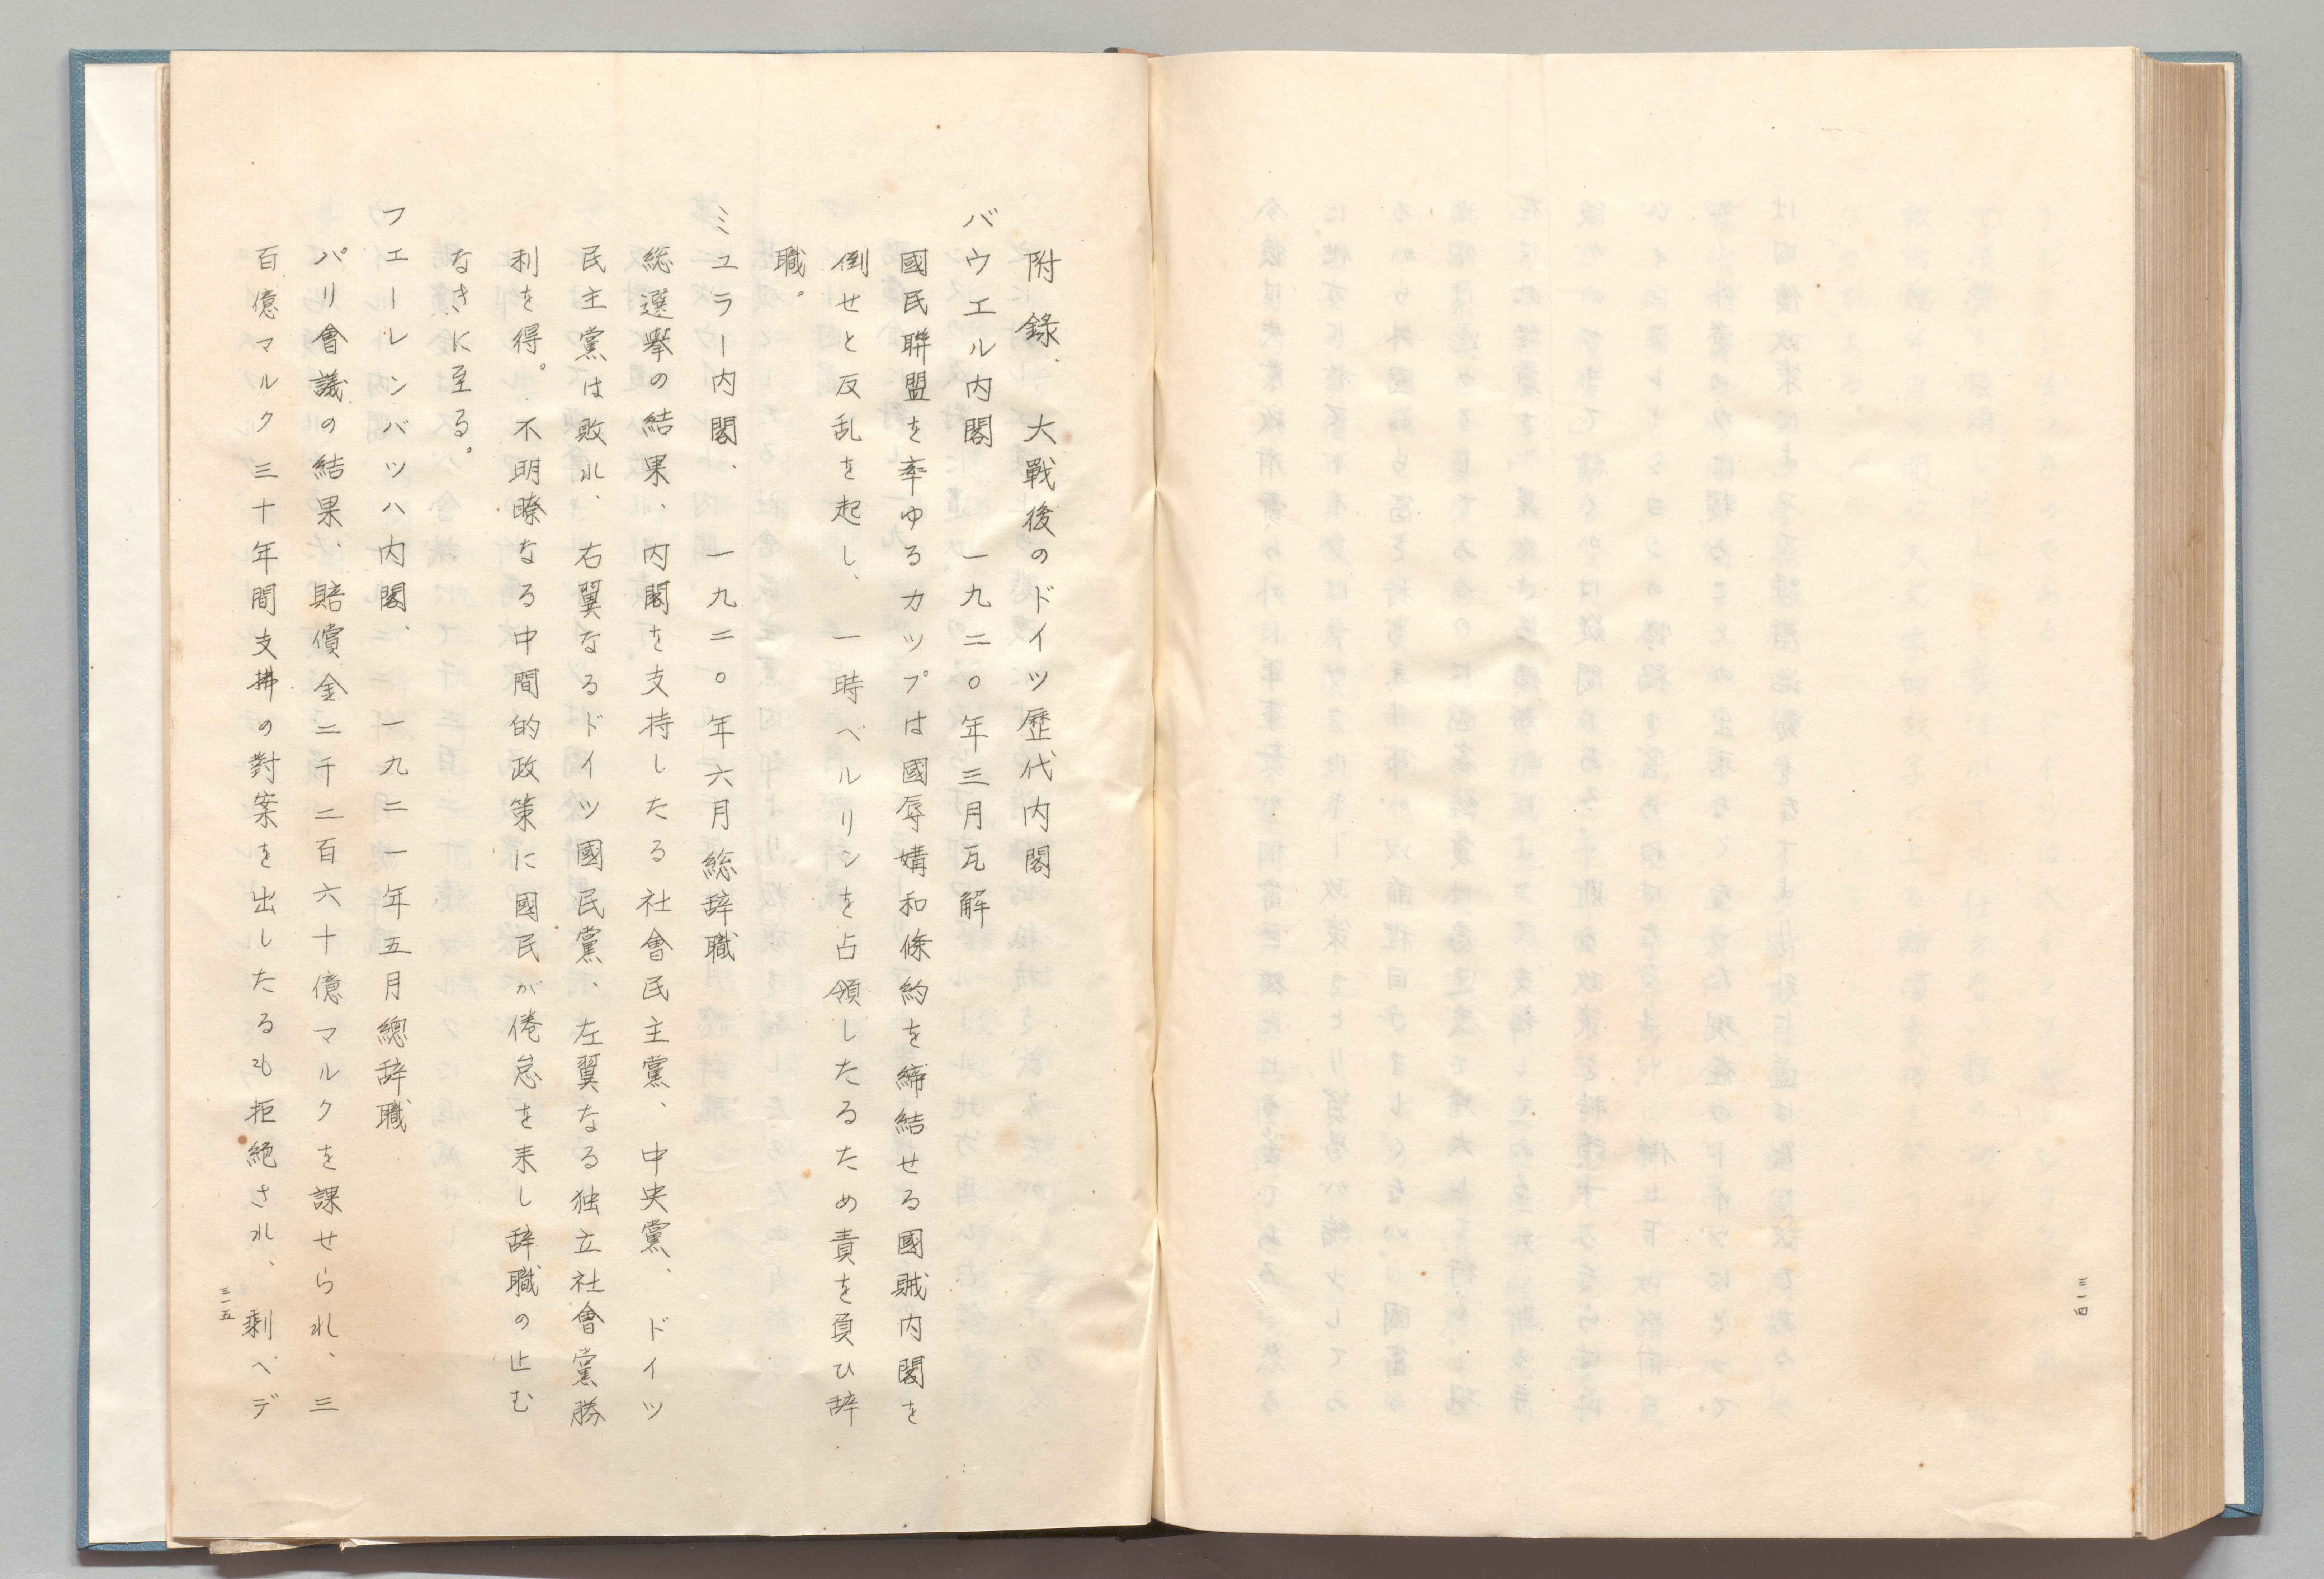 三一四
附錄．大戰後のドイツ歴代内閣
バウエル内閣　一九二〇年三月瓦解
國民聯盟を率ゆるカツプは國辱媾和條約を締結せる國賊内閣を
倒せと反乱を起し、一時ベルリンを占領したるため責を負ひ辞
職。
ミュラー内閣、一九二〇年六月総辞職
総選擧の結果、内閣を支持したる社會民主黨、中央黨、ドイツ
民主黨は敗れ、右翼なるドイツ國民黨、左翼なる独立社會黨勝
利を得。不明瞭なる中間的政策に國民が倦怠を来し辞職の止む
なきに至る。
フエーレンバツハ内閣、一九二一年五月總辞職
パリ會議の結果、賠償金二千二百六十億マルクを課せられ、三
百億マルク三十年間支拂の對案を出したるも拒絶され、剩へデ
三一五